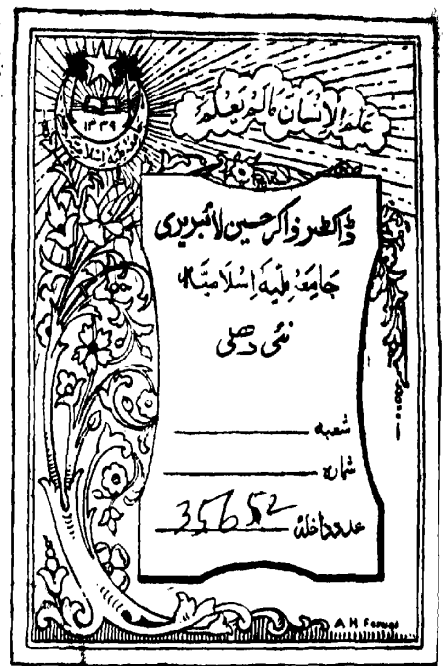 علم الانسان مالم يعلم
۱۳۳۹
ڈاکٹر ذاکر حسین لائبریری
جامعہ ملیہ اسلامیہ
نئی دھلی
شعبہ
شمارہ
عدد داخلہ 35652
A H Faruqi